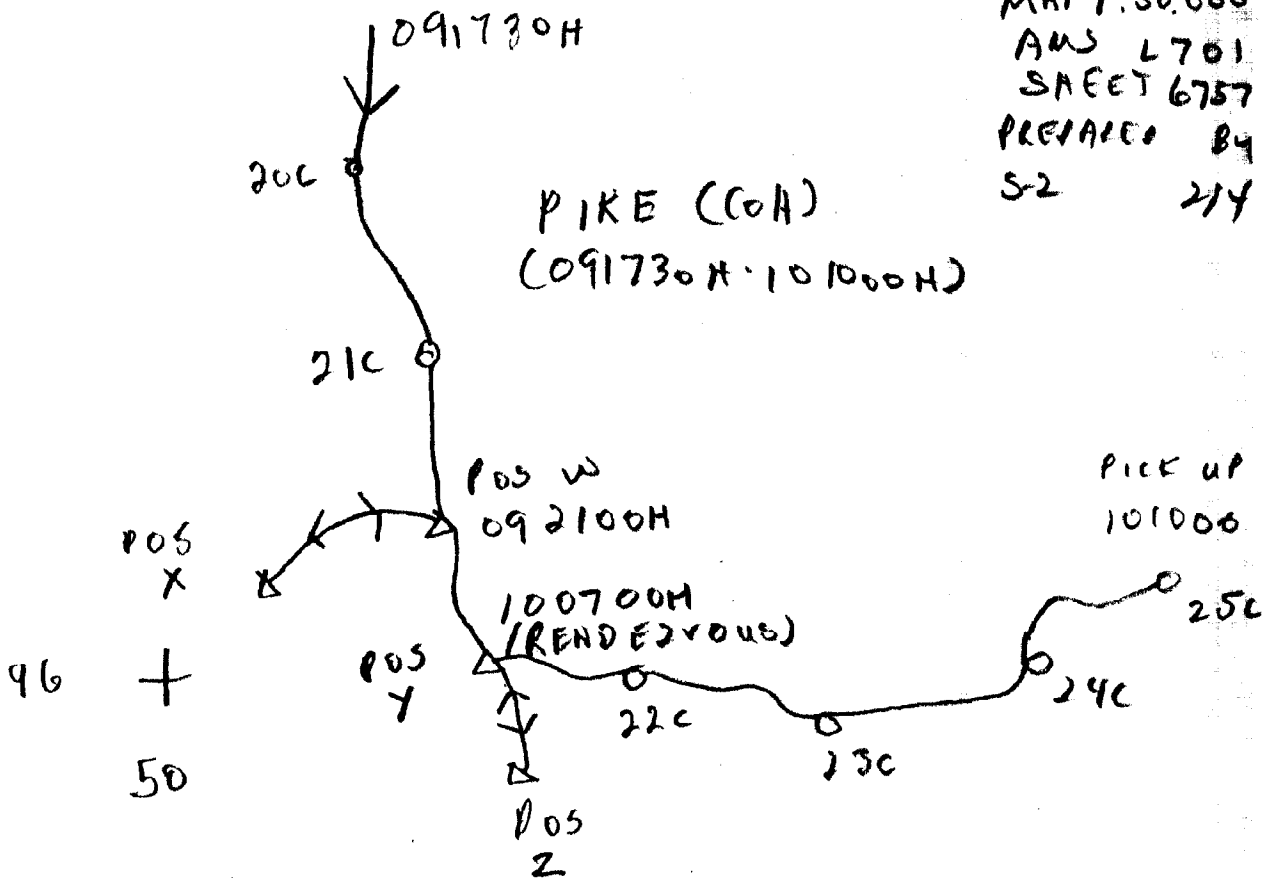 091730H
MAP 1:50.000
AMS L701
SHEET 6757
PREPARED BY
S-2 2/4
20C
PIKE (CoA)
(091730H-101000H)
21C
POS W
092100H
PICK UP
101000
POS
X
25C
100700H
(RENDEZVOUS)
POS
Y
96
24C
22C
23C
50
POS
Z